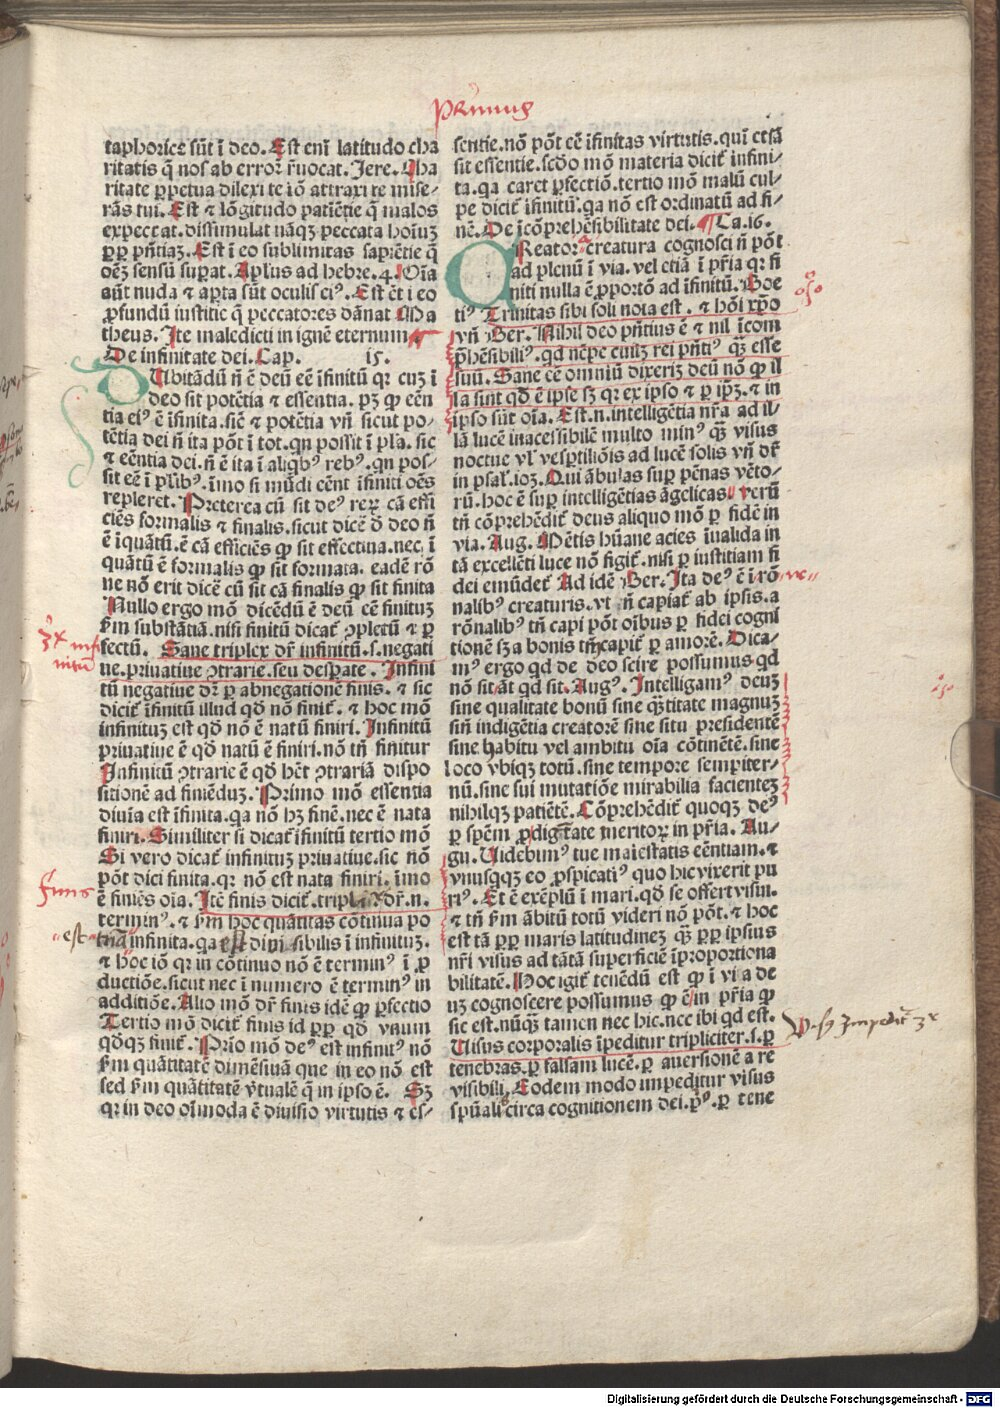 Primus
taphorice sūt ī deo. Est enī latitudo cha
ritatis q̄ nos ab errore r̄uocat. Jere. Cha
ritate ꝑpetua dilexi te iō attraxi te mise-
rās tui. Est ⁊ lōgitudo patiētie q̄ malos
expectat. dissimulat nāqꝫ peccata hoīuꝫ
ꝓpꝑ pn̄tiaꝫ. Est ī eo sublimitas sapiētie q̄
oēꝫ sensū suꝑat. Aplus ad hebre. 4. Oīa
aūt nuda ⁊ aꝑta sūt oculis eiꝰ. Est ēt ī eo
ꝓfundū iustitie q̄ peccatores dānat Ma
theus. Ite maledicti in ignē eternum
De infinitate dei. Cap. 15.
DUbitādū n̄ ē deū eē īfinitū qꝛ cuꝫ ī
deo sit potētia ⁊ essentia. pꝫ ꝙ eēn
tia eiꝰ ē īfinita. siē ⁊ potētia vn̄ sicut po-
tētia dei n̄ ita pōt ī tot. qn possit ī pl̄a. sic
⁊ eēntia dei. n̄ ē ita ī aliqbꝰ rebꝰ. qn pos-
sit eē ī pl̄ibꝰ. īmo si mūdi eēnt īfiniti oēs
repleret. Preterea cū sit deꝰ reꝝ cā effi
ciēs formalis ⁊ finalis. sicut dicē ō deo n̄
ē īquātū. ē cā efficiēs ꝙ sit effectiua. nec. ī
quātū ē formalis ꝙ sit formata. eadē rō
ne nō erit dicē cū sit cā finalis ꝙ sit finita
Nullo ergo mō dicēdū ē deū eē finituꝫ
ẜm substātiā. nisi finitū dicat̄ ꝯpletū ⁊ ꝑ
fectū. Sane triplex dr̄ infinitū. s. negati
ue. priuatiue ꝯtrarie. seu desꝑate. Infini
tū negatiue dr̄ ꝑ abnegationē finis. ⁊ sic
dicit̄ īfinitū illud qđ nō finit̄. ⁊ hoc mō
infinituꝫ est qđ nō ē natū finiri. Infinitū
priuatiue ē qđ natū ē finiri. nō tn̄ finitur
Infinitū ꝯtrarie ē qđ hēt ꝯtrariā dispo
sitionē ad finiēduꝫ. Primo mō essentia
diuīa est īfinita. qa nō hꝫ finē. nec ē nata
finiri. Similiter si dicat̄ īfinitū tertio mō
Si vero dicat̄ infinituꝫ priuatiue. sic nō
pōt dici finita. qꝛ nō est nata finiri. īmo
ē finiēs oīa. Itē finis dicit̄. tripl dr̄. n.
terminꝰ. ⁊ ẜm hoc quātitas cōtinua po
infinita. qa est diuisibilis ī infinituꝫ.
⁊ hoc iō qꝛ in cōtinuo nō ē terminꝰ ī ꝓ
ductiōe. sicut nec ī numero ē terminꝰ in
additiōe. Alio mō dr̄ finis idē ꝙ ꝑfectio
Tertio mō dicit̄ finis id ꝓpꝑ qđ vnum
qđqꝫ finit̄. Prīo mō deꝰ est infinitꝰ nō
ẜm quātitatē dimēsiuā que in eo nō est
sed ẜm quātitatē v̄tualē q̄ in ipso ē. Sꝫ
qꝛ in deo oīmoda ē diuisio virtutis ⁊ es-
sentie. nō pōt eē īfinitas virtutis. quī etsā
sit essentie. scđo mō materia dicit̄ infini-
ta. qa caret ꝑfectiō. tertio mō malū cul-
pe dicit̄ īfinitū. qa nō est ordinatū ad fi-
nē. De īcōprehēsibilitate dei. Ca. 16.
CReator a creatura cognosci n̄ pōt
ad plenū ī via. vel etiā ī pr̄ia qꝛ fi
niti nulla ē ꝓportō ad īfinitū. Boe
tiꝰ Trinitas sibi soli nota est. ⁊ hōi xp̄o
vn̄ Ber. Nihil deo pn̄tius ē ⁊ nil īcom
p̄hēsibiliꝰ. qd nēpe cuiꝫ rei pn̄tiꝰ qꝫ esse
suū. Sane eē omniū dixeriꝫ deū nō ꝙ il
la sint qđ ē ipse sꝫ qꝛ ex ipso ⁊ ꝑ ipꝫ. ⁊ in
ipso sūt oīa. Est. n. intelligētia nr̄a ad il-
lā lucē inaccessibilē multo minꝰ qꝫ visus
noctue vl̓ vesꝑtiliōis ad lucē solis vn̄ dr̄
in psal. 103. Qui ābulas suꝑ pēnas vēto-
rū. hoc ē suꝑ intelligētias āgelicas verū
tn̄ cōprehēdit̄ deus aliquo mō ꝑ fidē in
via. Aug. Mētis hūane acies īualida in
tā excellēti luce nō figit̄. nisi ꝑ iustitiam fi
dei emūdet̄ Ad idē Ber. Ita deꝰ ē ī rō-
nalibꝰ creaturis. vt n̄ capiat̄ ab ipsis. a
rōnalibꝰ tn̄ capi pōt oībus ꝑ fidei cogni
tionē sꝫ a bonis capit̄ ꝑ amorē. Dica-
mꝰ ergo qđ de deo scire possumus qd
nō sit at qd sit. Augꝰ. Intelligamꝰ deuꝫ
sine qualitate bonū sine qꝫtitate magnuꝫ
sin̄ indigētia creatorē sine situ presidentē
sine habitu vel ambitu oīa cōtinētē. sine
loco vbiqꝫ totū. sine tempore sempiter-
nū. sine sui mutatiōe mirabilia facienteꝫ
nihilqꝫ patiētē. Cōprehēdit̄ quoqꝫ deꝰ
ꝑ spēm ꝓ dignitate meritoꝝ in pr̄ia. Au-
gu. Uidebimꝰ tue maiestatis eēntiam. ⁊
vnusqqꝫ eo ꝑspicatiꝰ quo hic vixerit pu
riꝰ. Et ē exēplū ī mari. qđ se offert visui.
⁊ tn̄ ẜm ābitū totū videri nō pōt. ⁊ hoc
est tā ꝓpꝑ maris latitudineꝫ qꝫ ꝓpꝑ ipsius
nr̄i visus ad tātā suꝑficiē īproportiona
bilitatē. Hoc igit̄ tenēdū est ꝙ ī via de
uꝫ cognoscere possumus ꝙ ē in pr̄ia ꝙ
sic est. nūqꝫ tamen nec hic. nec ibi qd est.
Uisus corporalis īpeditur tripliciter. s. ꝑ
tenebras. ꝑ falsam lucē. ꝑ auersionē a re
visibili. Eodem modo impeditur visus
spūalis circa cognitionem dei. pꝰ. ꝑ tene
finis
est
Digitalisierung gefördert durch die Deutsche Forschungsgemeinschaft - DFG